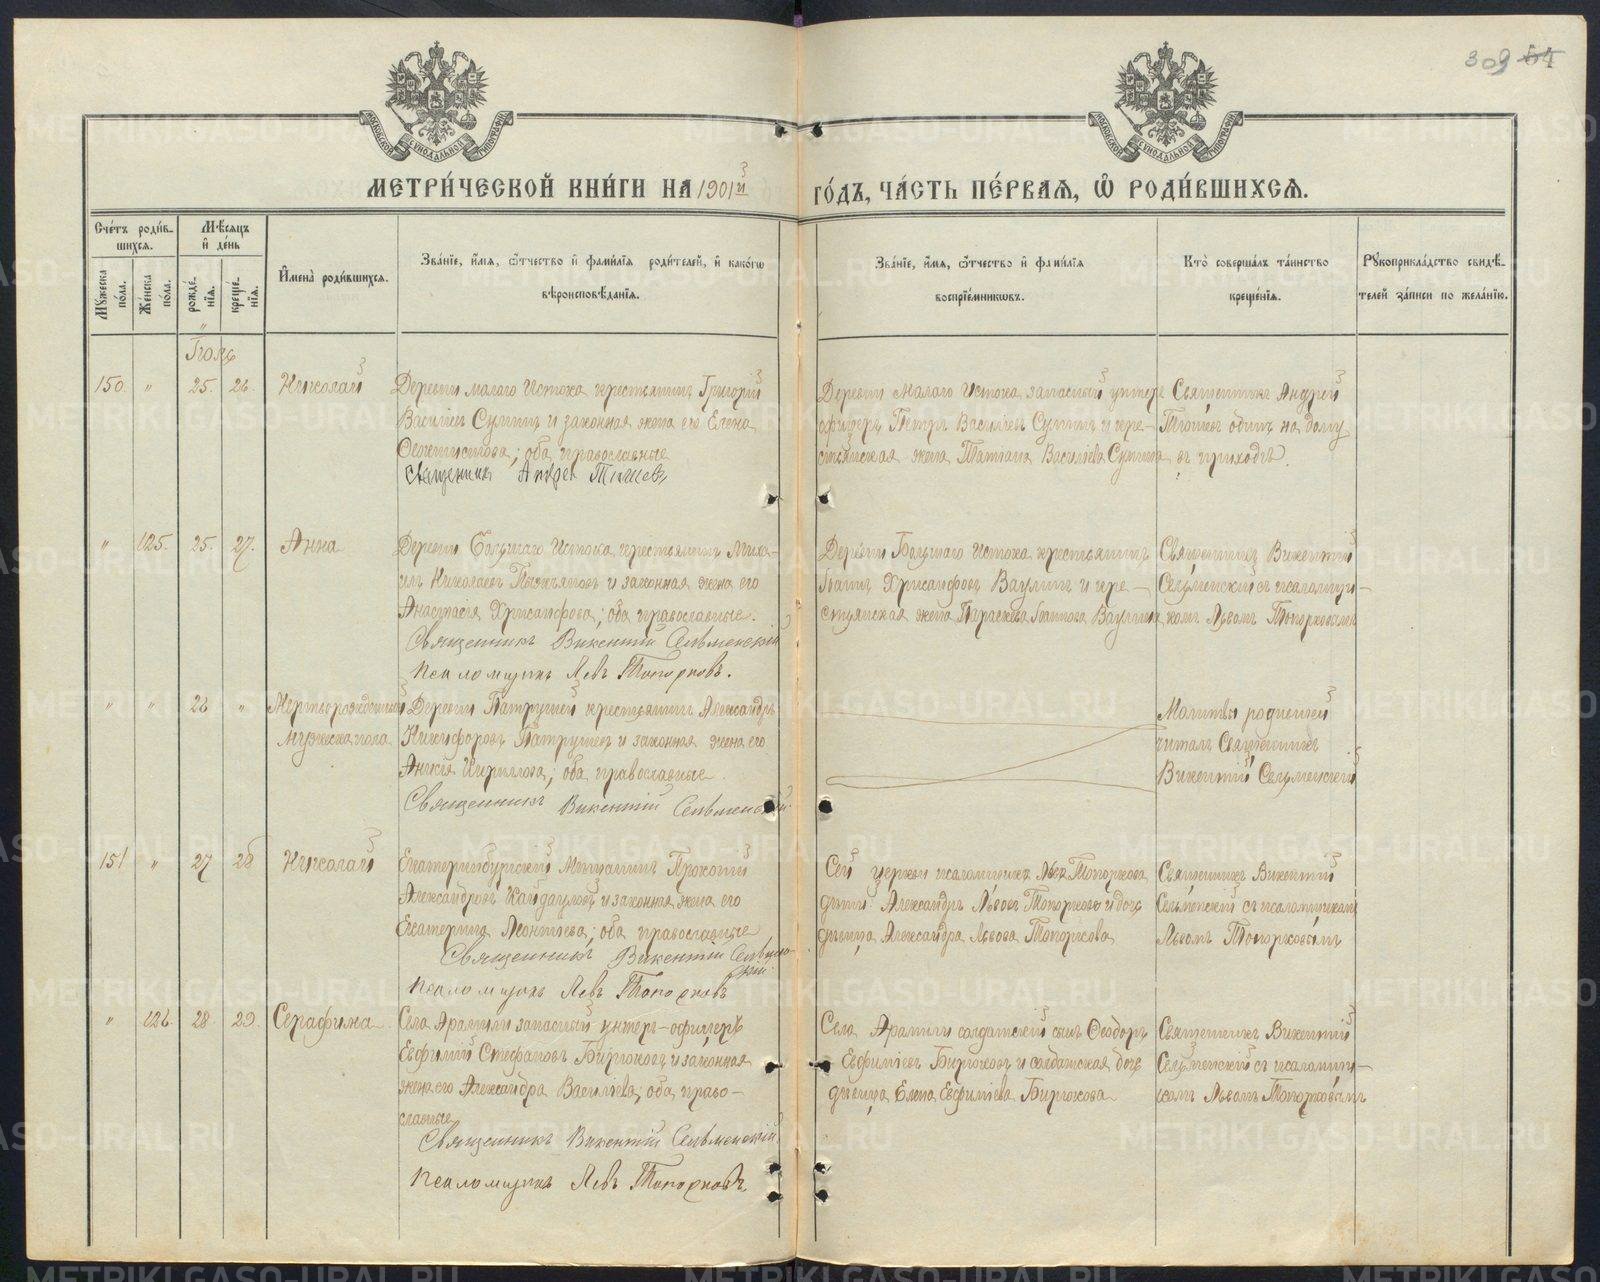 309 54
МОСКОВСКОЙ СѴНОДАЛЬНОЙ ТИПОГРАФІИ
МОСКОВСКОЙ СѴНОДАЛЬНОЙ ТИПОГРАФІИ
МЕТРИ́ЧЕСКОЙ КНИ́ГИ НА 1901й ГО́ДЪ, ЧА́СТЬ ПЕ́РВАѦ, Ѡ РОДИ́ВШИХСѦ.
Сче́тъ роди́в-
шихсѧ.
Мꙋ́жеска по́ла.
Же́нска по́ла.
Мѣ́сѧцъ
и҆ де́нь
рожде́-
нїѧ.
креще́-
нїѧ.
И҆мена̀ роди́вшихсѧ.
Зва́нїе, и҆́мѧ, ѻ҆́тчество и҆ фами́лїѧ роди́телей, и҆ како́гѡ
вѣроисповѣ́данїѧ.
Зва́нїе, и҆́мѧ, ѻ҆́тчество и҆ фами́лїѧ
воспрїе́мникѡвъ.
Кто̀ соверша́лъ та́инство
креще́нїѧ.
Рꙋкоприкла́дство свидѣ́-
телей за́писи по жела́нїю.
Іюль
150. " 25. 26. Николай
Деревни Малаго Истока крестьянинъ Григорій
Василіевъ Сулинъ и законная жена его Елена
оба православные
Священникъ Андрей
Деревни Малаго Истока запасный унтеръ
офицеръ Петръ Василіевъ и кре-
стьянская жена Татіана Василіева
Священникъ Андрей
одинъ на дому
въ приходѣ.
" 125. 25. 27. Анна
Деревни Большаго Истока крестьянинъ Миха-
илъ Николаевъ и законная жена его
Анастасія Хрисанфова; оба православные.
Священникъ Викентій Сельменскій
Псаломщикъ Левъ Топорковъ.
Деревни Большаго Истока крестьянинъ
Іоаннъ Хрисанфовъ Ваулинъ и кре-
стьянская жена Параскева Іоаннова Ваулина
Священникъ Викентій
Сельменскій съ псаломщи-
комъ Львомъ Топорковымъ
" " 26 " Мертворожденный
мужеска пола
Деревни Патрушей крестьянинъ Александръ
Никифоровъ Патрушевъ и законная жена его
Анисія Кириллова; оба православные
Священникъ Викентій Сельменскій
Молитвы родильней
читалъ Священникъ
Викентій Сельменскій
151 " 27 28 Николай
Екатеринбургскій Мѣщанинъ Прокопій
Александровъ Кайдауловъ и законная жена его
Екатерина Леонтіева; оба православные
Священникъ Викентій Сельмен-
скій
Псаломщикъ Левъ Топорковъ
Сей церкви псаломщика Льва Топоркова
дѣти: Александръ Львовъ Топорковъ и дочь
дѣвица Александра Львова Топоркова
Священникъ Викентій
Сельменскій съ псаломщикомъ
Львомъ Топорковымъ
" 126 28 29. Серафима
Села Арамили запасный унтеръ-офицеръ
Евфимій Стефановъ Бирюковъ и законная
жена его Александра Василіева; оба право-
славные
Священникъ Викентій Сельменскій
Псаломщикъ Левъ Топорковъ
Села Арамили солдатскій сынъ Ѳеодоръ
Евфиміевъ Бирюковъ и солдатская дочь
дѣвица Елена Евфиміева Бирюкова
Священникъ Викентій
Сельменскій съ псаломщи-
комъ Львомъ Топорковымъ
METRIKI.GASO-URAL.RU